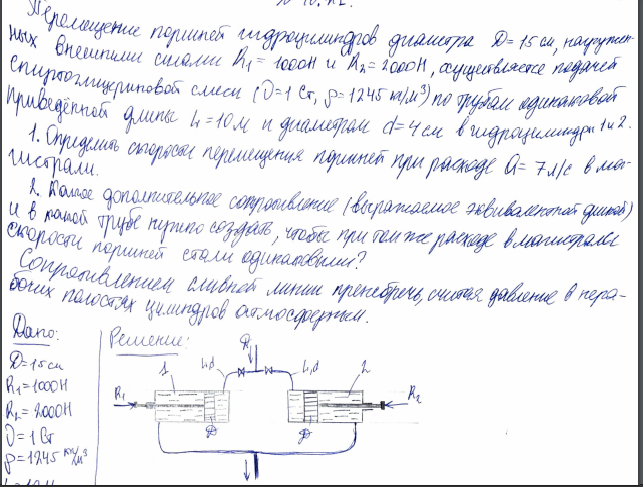 Перемещение поршней гидроцилиндров диаметра D=15 см, нагружен-
ных внешними силами R₁ = 1000Н и R₂ = 2000Н, осуществляется подачей
спиртоглицериновой смеси (ν = 1 Ст, ρ = 1245 кг/м³) по трубам одинаковой
приведённой длины L = 10 м и диаметром d = 4 см в гидроцилиндры 1 и 2.
1. Определить скорости перемещения поршней при расходе Q = 7 л/с в маг-
истрали.
2. Какое дополнительное сопротивление (выражаемое эквивалентной длиной)
и в какой трубе нужно создать, чтобы при том же расходе в магистрали
скорости поршней стали одинаковыми?
Сопротивлением сливной линии пренебречь, считая давление в нера-
бочих полостях цилиндров атмосферным.
Дано:
Решение:
D=15 см
R₁=1000Н
R₂=2000Н
ν=1 Ст
ρ=1245 кг/м³
1
L,d
Q
L,d
2
R₁
D
D
R₂